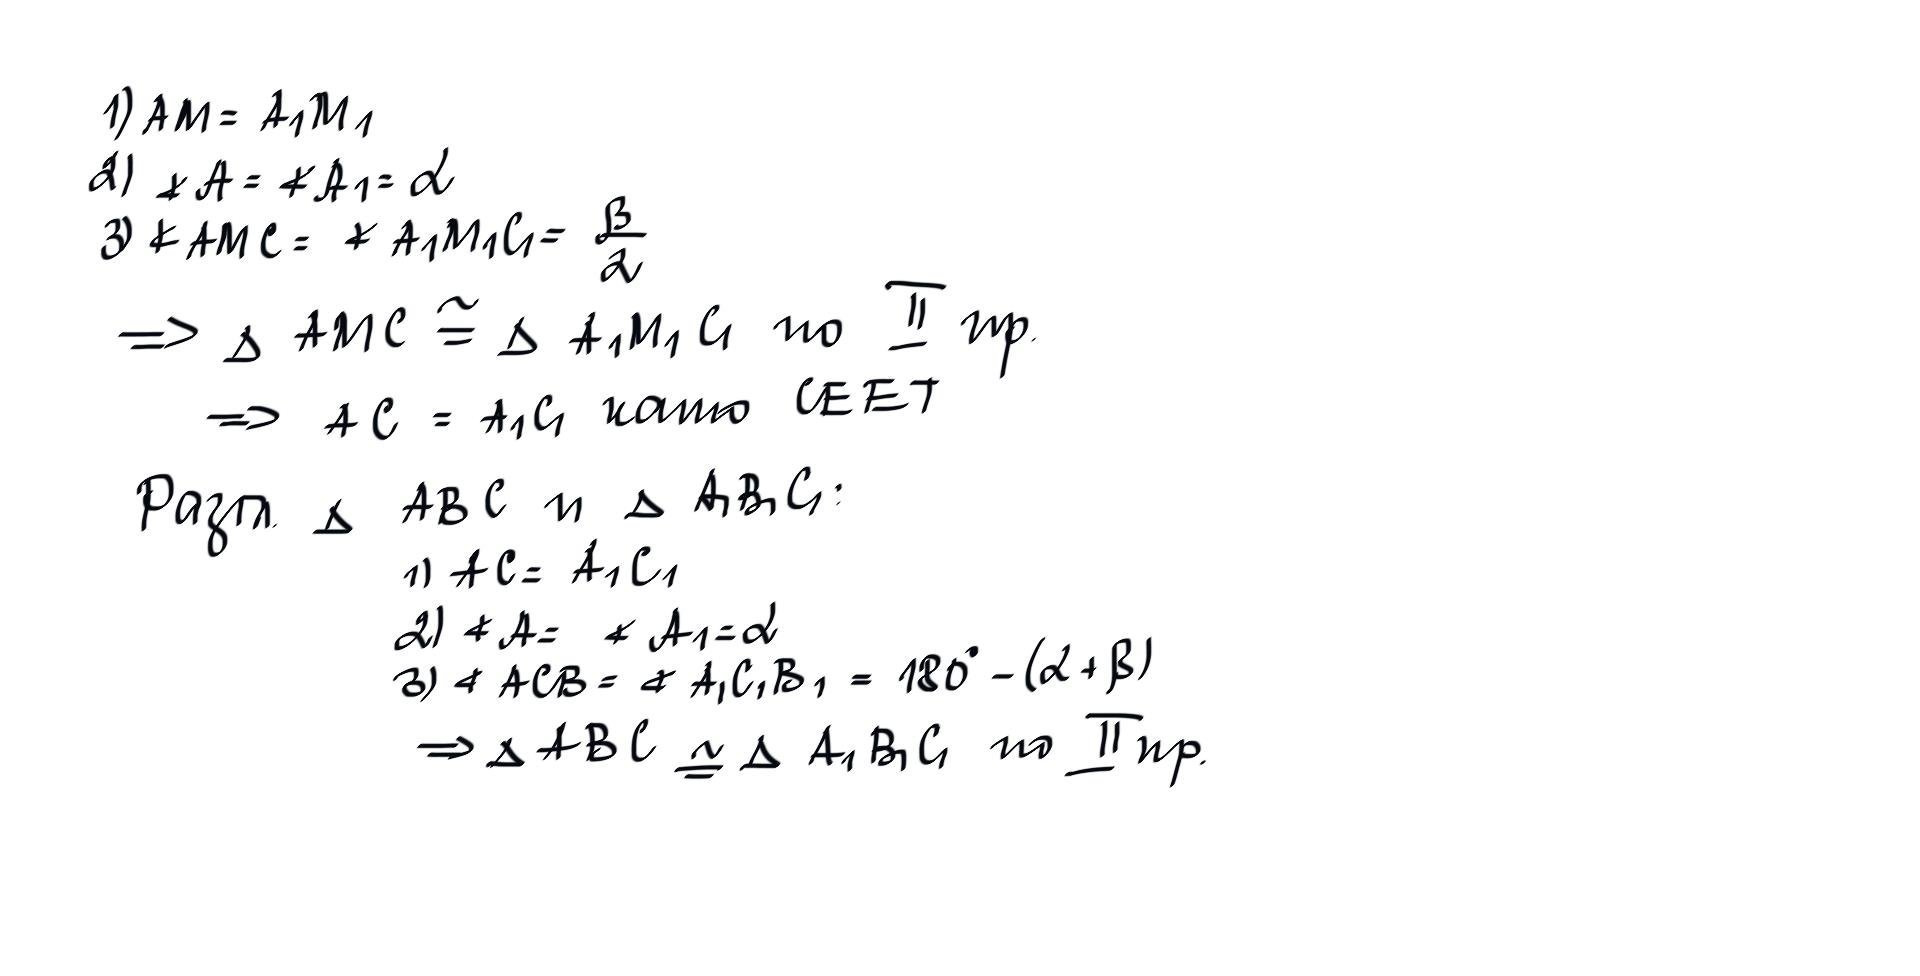 1) AM = A₁M₁
2) ∢A = ∢A₁ = α
3) ∢AMC = ∢A₁M₁C₁ = β/2
=> Δ AMC ≅ Δ A₁M₁C₁ по II пр.
=> AC = A₁C₁ като СЕЕТ
Разгл. Δ ABC и Δ A₁B₁C₁:
1) AC = A₁C₁
2) ∢A = ∢A₁ = α
3) ∢ACB = ∢A₁C₁B₁ = 180° - (α + β)
=> Δ ABC ≅ Δ A₁B₁C₁ по II пр.